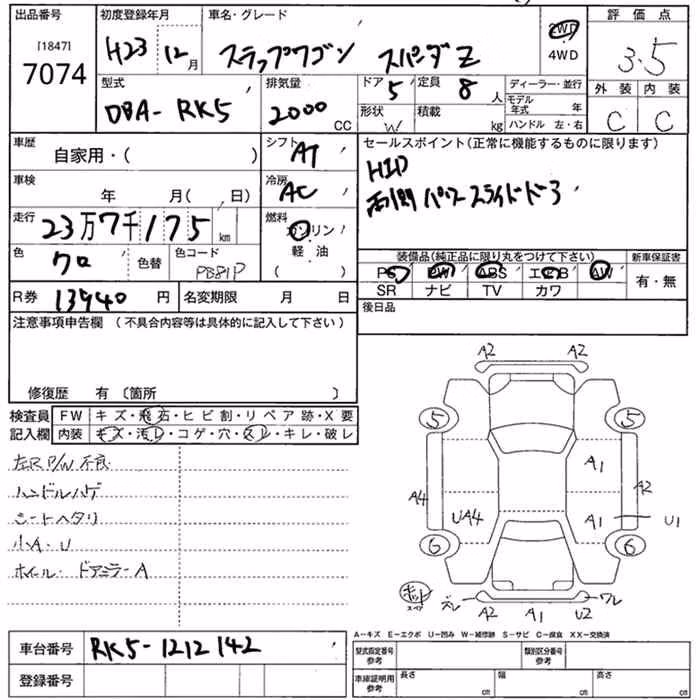 出品番号 初度登録年月 車名・グレード 評価点
[1847] 7074 H23 12月 ステップワゴン スパーダZ 2WD 4WD 3.5
型式 排気量 ドア 定員 ディーラー・並行 外装 内装
DBA-RK5 2000 CC 5 8人 モデル年式 年 C C
形状 W 積載 kg ハンドル 左・右
車歴 自家用・( ) シフト AT セールスポイント(正常に機能するものに限ります)
HID
両側パワースライドドア
車検 年 月( 、 日) 冷房 AC
走行 23万7千175 km 燃料 ガソリン 軽油 ( )
色 クロ 色替 色コード PB81P
装備品(純正品に限り丸をつけて下さい) 新車保証書
PS PW ABS エアB AW 有・無
SR ナビ TV カワ
R券 13940円 名変期限 月 日 後日品
注意事項申告欄 (不具合内容等は具体的に記入して下さい)
修復歴 有 〔箇所 〕
検査員記入欄 FW キズ・飛石・ヒビ割・リペア跡・X要
内装 キズ・汚レ・コゲ・穴・スレ・キレ・破レ
左R P/W 不良
ハンドルハゲ
シートヘタリ
小A・U
ホイール・ドアミラーA
A2 A2
5 5
A1
A4 A2
UA4 A1 U1
6 6
ズレ ワレ
A2 A1 U2
A-キズ E-エクボ U-凹み W-補修跡 S-サビ C-腐食 XX-交換済
車台番号 RK5-1212142 型式指定番号 参考 類別区分番号 参考
登録番号 車庫証明用 参考 長さ cm 幅 cm 高さ cm